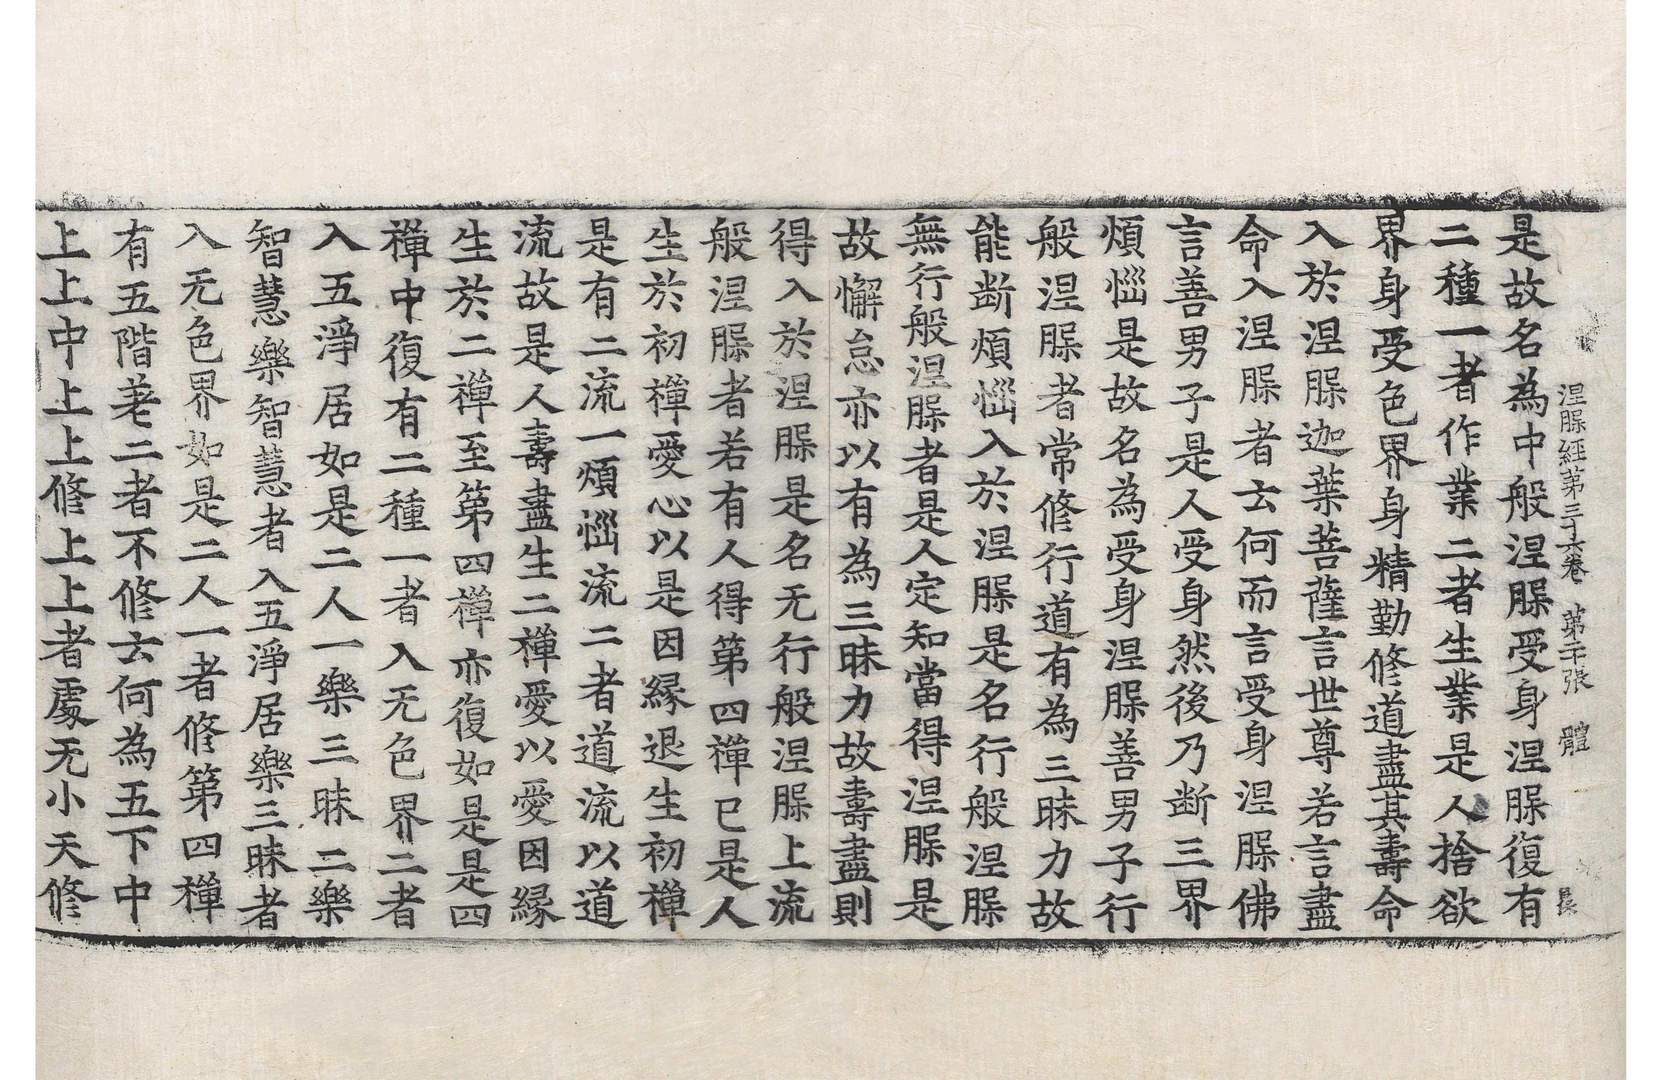 涅槃経第三十六卷 第二十張 體 長
是故名為中般涅槃受身涅槃復有
二種一者作業二者生業是人捨欲
界身受色界身精勤修道盡其壽命
入於涅槃迦葉菩薩言世尊若言盡
命入涅槃者云何而言受身涅槃佛
言善男子是人受身然後乃断三界
煩惱是故名為受身涅槃善男子行
般涅槃者常修行道有為三昧力故
能断煩惱入於涅槃是名行般涅槃
無行般涅槃者是人定知當得涅槃是
故懈怠亦以有為三昧力故壽盡則
得入於涅槃是名无行般涅槃上流
般涅槃者若有人得第四禪已是人
生於初禪愛心以是因縁退生初禪
是有二流一煩惱流二者道流以道
流故是人壽盡生二禪愛以愛因縁
生於二禪至第四禪亦復如是是四
禪中復有二種一者入无色界二者
入五淨居如是二人一樂三昧二樂
智慧樂智慧者入五淨居樂三昧者
入无色界如是二人一者修第四禪
有五階差二者不修云何為五下中
上上中上上修上上者處无小天修